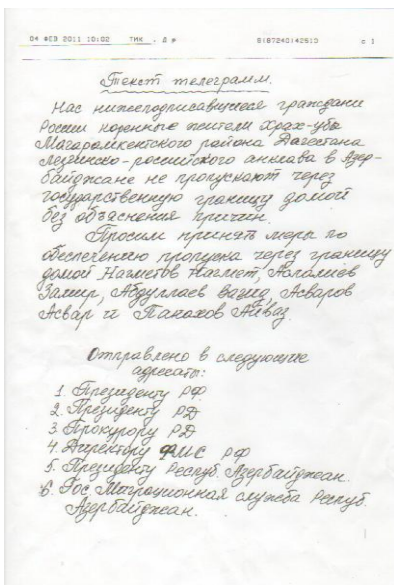 04 ФЕВ 2011 10:02 ТИК 8(87240)42610 с 1
Текст телеграмм.
Нас нижеподписавшиеся граждани
России коренные жители Храх-уба
Магарамкентского района Дагестана
лезгинско-российского анклава в Азер-
байджане не пропускают через
государственную границу домой
без объяснения причин.
Просим принять меры по
обеспечению пропуска через границу
домой Нагметов Нагмет,
Замир, Абдуллаев Вагид, Асваров
Асвар и Панахов Айваз.
Отправлено в следующие
адресаты:
1. Президенту РФ
2. Президенту РД
3. Прокурору РД
4. Директору ФМС РФ
5. Президенту Респуб. Азербайджан.
6. Гос. Миграционная служба Респуб.
Азербайджан.